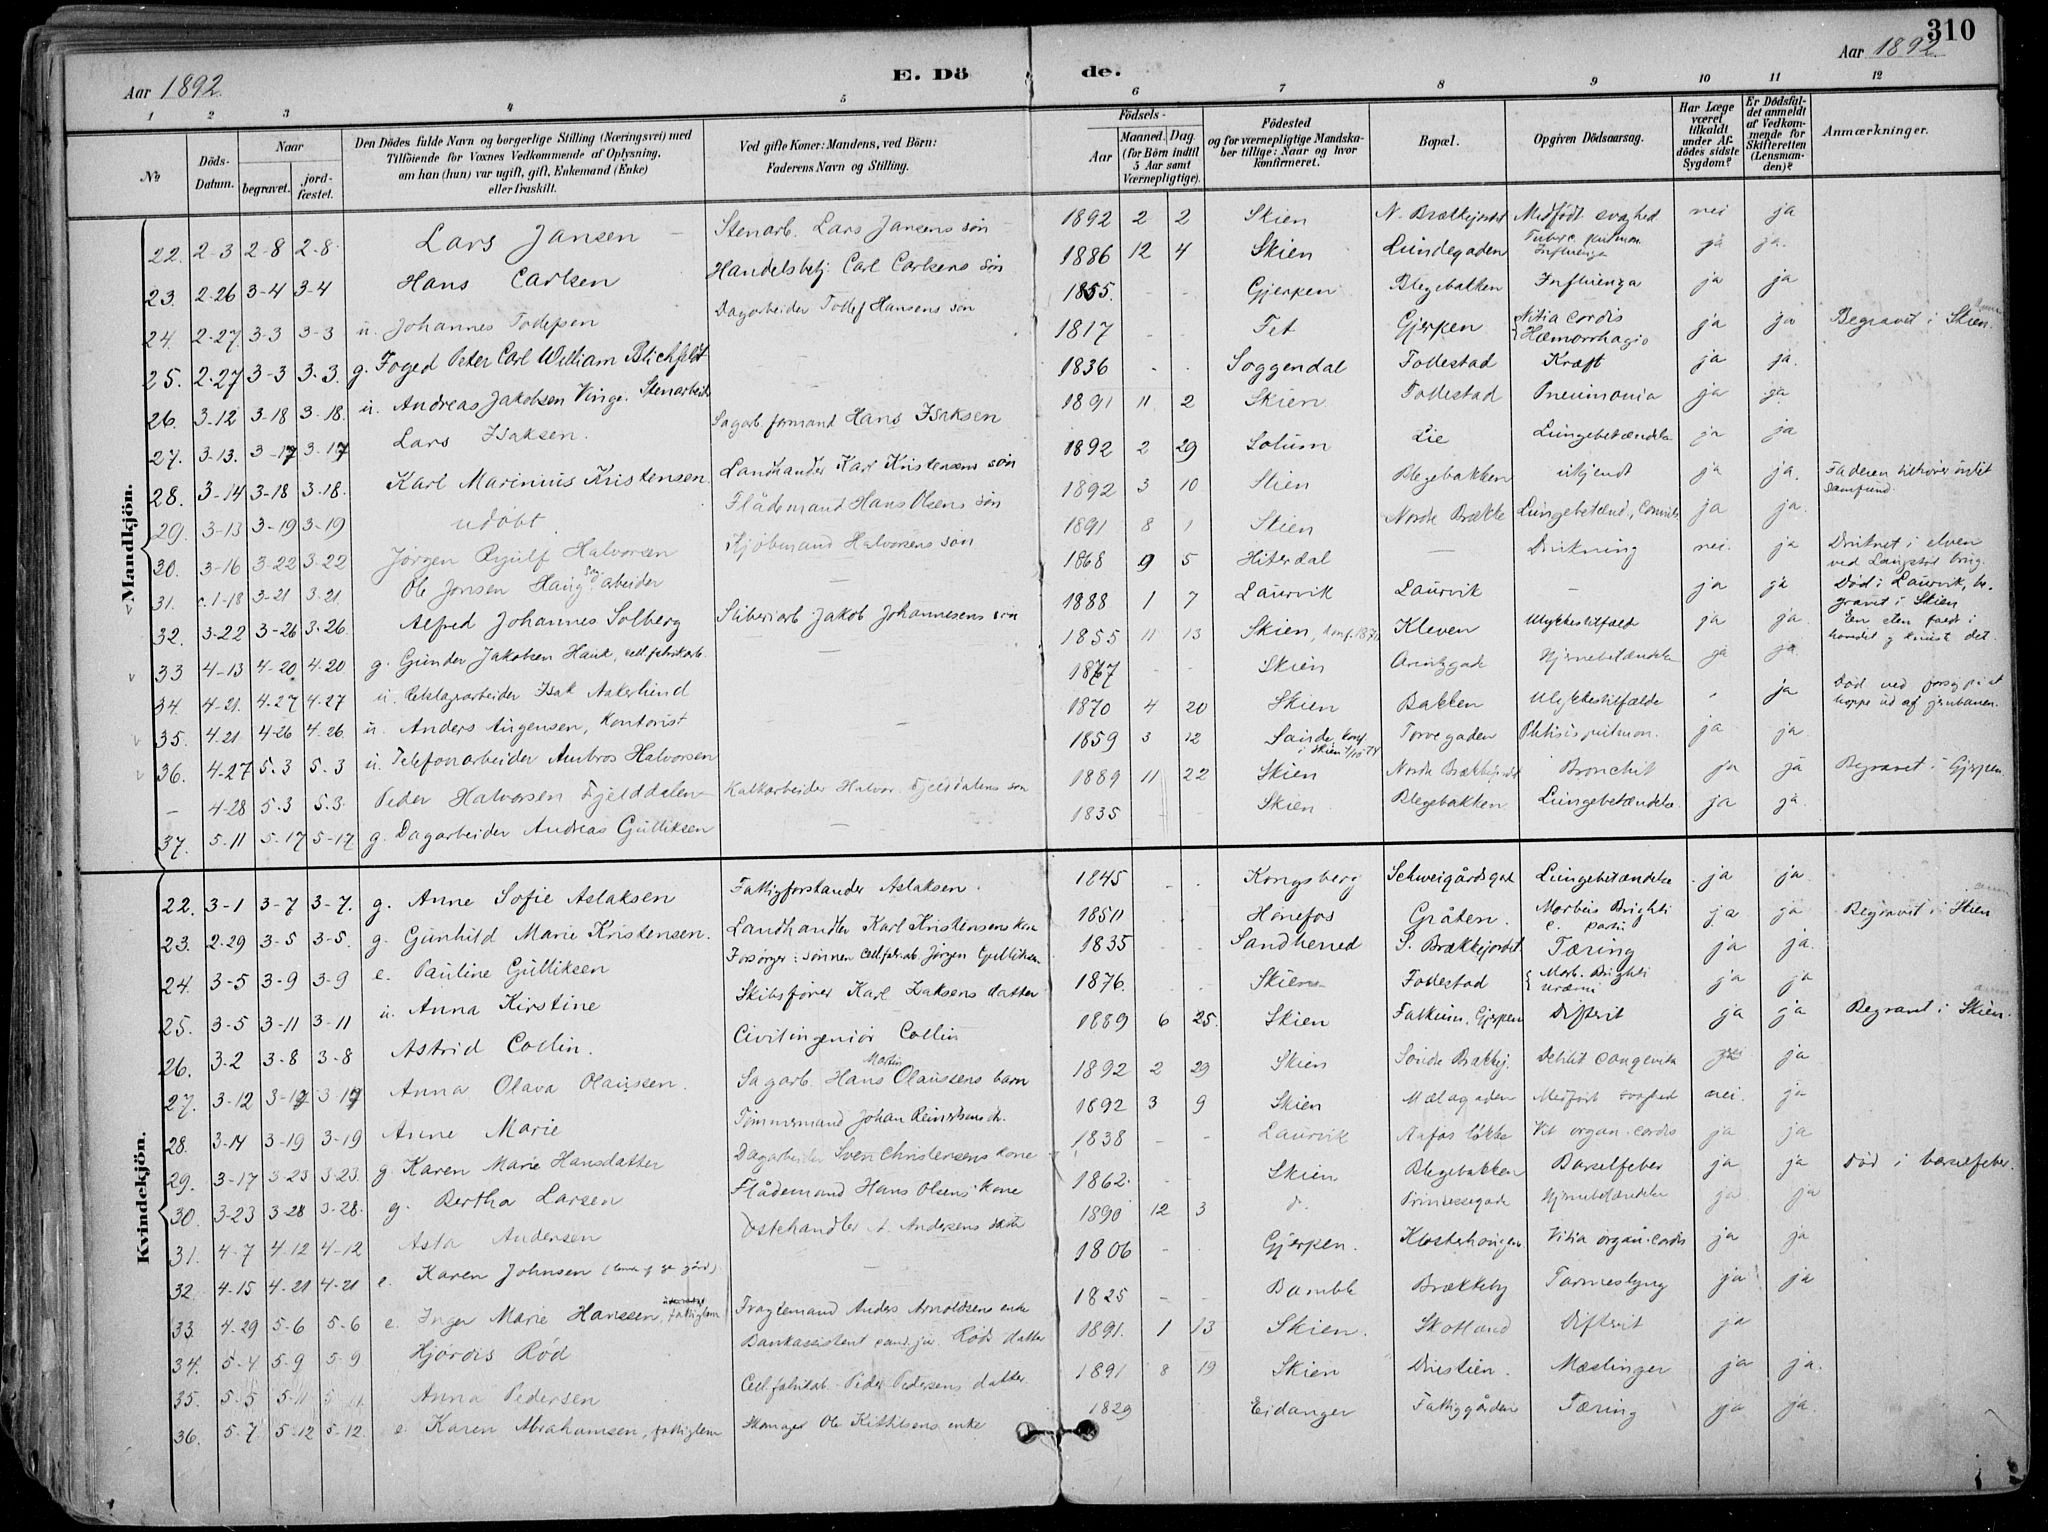 310
Aar 1892.
E. Dö
de.
Aar 1892.
1 2 3 4 5 6 7 8 9 10 11 12
No
Döds-Datum.
Naar
begravet.
jord-fæstet.
Den Dödes fulde Navn og borgerlige Stilling (Næringsvei) med
Tilföiende for Voxnes Vedkommende af Oplysning,
om han (hun) var ugift, gift, Enkemand (Enke)
eller fraskilt.
Ved gifte Koner: Mandens, ved Börn:
Faderens Navn og Stilling.
Födsels-
Aar
Maaned. Dag.
(for Börn indtil
5 Aar samt
Værnepligtige).
Födested
og for værnepligtige Mandska-
ber tillige: Naar og hvor
konfirmeret.
Bopæl.
Opgiven Dödsaarsag.
Har Læge
været
tilkaldt
under Af-
dödes sidste
Sygdom?
Er Dödsfal-
det anmeldt
af Vedkom-
mende for
Skifteretten
(Lensman-
den)?
Anmærkninger.
Mandkjön.
22. 2-3 2-8 2-8. Lars Jansen Stenarb. Lars Jansens sön 1892 2 2 Skien N. Brækkejordet Medfödt svaghed nei ja
23. 2-26 3-4 3-4 Hans Carlsen Handelsbetj. Carl Carlsens sön 1886 12 4 Skien Lundegaden Tuberc. pulmon. Influenza ja ja.
24. 2-27 3-3 3-3 u. Johannes Dagarbeider Hansens sön 1855. - - Gjerpen Blegebakken Influenza ja ja
25. 2-27 3-3 3.3. g. Foged Peter Carl William Blichfeldt - 1817 - - Fet Gjerpen Vitia cordis Hæmorrhagio ja ja Begravet i Skien.
26. 3-12 3-18 3-18. u. Andreas Jakobsen Vinge. Stenarbeider - 1836 - - Soggendal Follestad Kræft ja ja.
27. 3-13. 3-17 3-17 Lars Isaksen. Sagarb formand Hans Isaksen 1891 11 2 Skien Follestad Pneumonia ja ja
28. 3-14 3-18 3-18. Karl Marinius Kristensen Landhandler Karl Kristensens sön 1892 2 29 Solum Lie Lungebetændelse ja ja
29. 3-13 3-19 3-19 udöbt Flådemand Hans Olsens sön 1892 3 10 Skien Blegebakken ukjendt ja ja. Faderen tilhörer intet samfund.
30. 3-16 3-22 3-22 Jørgen Halvorsen Kjöbmand Halvorsens sön 1891 8 1 Skien Nordre Brække Lungebetænd, ja ja.
31. c. 1-18 3-21 3.21. Ole Jonsen Haug. Sagarbeider - 1868 9 5 Hiterdal - Drukning nei. ja Druknet i elven ved brug.
32. 3-22 3-26 3-26. Alfred Johannes Solberg Sliberiarb. Jakob Johannesens sön 1888 1 7 Laurvik Laurvik - ja ja Död i Laurvik, begravet i Skien
33 4-13 4-20 4.20 g. Gunder Jakobsen Hauk, cell.fabrikarb. - 1855 11 13 Skien, Konf. Kleven Ulykkestilfælde ja ja.
34. 4-21. 4.27 4-27 u. Isak Aakerlund 1867 - - Skien Arnitzgade Hjernebetændelse ja ja
35. 4.21 4-26 4.26 u. Anders Augensen, Kontorist - 1870 4 20 Skien Bakken Ulykkestilfælde ja Död ved forsög på at hoppe ud af jernbanen.
36. 4-27 5.3 5.3 u. Telefonarbeider Ambros Halvorsen - 1859 3 12 Sande, konf. i Skien Torvegaden Phtisis pulmon. ja ja.
- 4-28 5.3 5.3. Peder Halvorsen Fjelddalen Kalkarbeider Halvor Fjelddalens sön 1889 11 22 Skien Nordre Brækkejordet Bronchit ja ja Begravet i Gjerpen
37. 5-11 5.17 5-17 g. Dagarbeider Andreas Gulliksen - 1835 Skien Blegebakken. Lungebetændelse. ja ja
Kvindekjön.
22. 3-1 3-7 3-7. g. Anne Sofie Aslaksen Fattigforstander Aslaksen. 1845 - - Kongsberg Schweigårdsgad Lungebetændelse ja ja.
23. 2-29 3-5 3-5. g. Gunhild Marie Kristensen. Landhandler Karl Kristensens kone 1850 - - Hönefos Gråten. Morbus Brighti c. partu ja ja Begravet i Skien
24. 3-5 3-9 3-9 e. Pauline Gulliksen Forsörger: sönnen cell.fabr.arb Jörgen Gulliksen 1835 - - Sandherred S. Brækkejordet Tæring ja ja.
25. 3-5 3-11 3-11 u. Anna Kirstine Skibsförer Karl Isaksens datter 1876. - - Skien Follestad Morb. Brighti Uræmi ja ja
26. 3-2 3-8 3-8 Astrid Collin. Civilingeniör Collin 1889 6 25. Skien Falkum, Gjerpen Difterit ja ja Begravet i Skien.
27. 3-12 3-17 3-17 Anna Olava Olaussen. Sagarb. Hans Martin Olaussens barn 1892 2 29 Skien Söndre Brækkej. Debilit congenita ja
28. 3-14 3-19 3-19 Anne Marie Tömmermand Johan Reinertsens dr. 1892 3 9 Skien Mælagaden Medfödt svaghed nei. ja
29. 3-17 3-23 3-23. g. Karen Marie Hansdatter Dagarbeider Sven Christensens kone 1838 - - Laurvik Aafos lökke Vit organ. cordis ja ja
30. 3-23 3-28 3-28. g. Bertha Larsen Flådemand Hans Olsens kone 1862. - - Skien Blegebakken Barselfeber ja ja Död i barselfeber.
31. 4-7 4-12 4-12 Asta Andersen Ostehandler A. Andersens datter 1890 12 3 d. Prinsessegade Hjernebetændelse ja ja
32. 4-15 4-21 4-21 e. Karen Johnsen - 1806 - - Gjerpen. Klosterhaugen Vitia organ. cordis ja ja
33. 4-29 5-6 5-6 e. Inger Marie Hanssen, fattiglem Fragtemand Anders Arnoldsens enke 1825 - - Bamble Brækkeby Tarmeslyng ja ja
34. 5-4 5-9 5-9 Hjördis Röd Bankassistent cand. jur. Röds datter 1891. 1 13 Skien. Skotland Difterit ja
35. 5-5 5-11 5-11. Anna Pedersen Cell.fabrikarb. Peder Pedersens datter. 1891 8 19 Skien Mæslinger ja ja.
36. 5-7 5-12 5-12. e. Karen Abrahamsen, fattiglem Skomager Ole Kittilsens enke 1829 - - Eidanger Fattiggården Tæring ja ja.